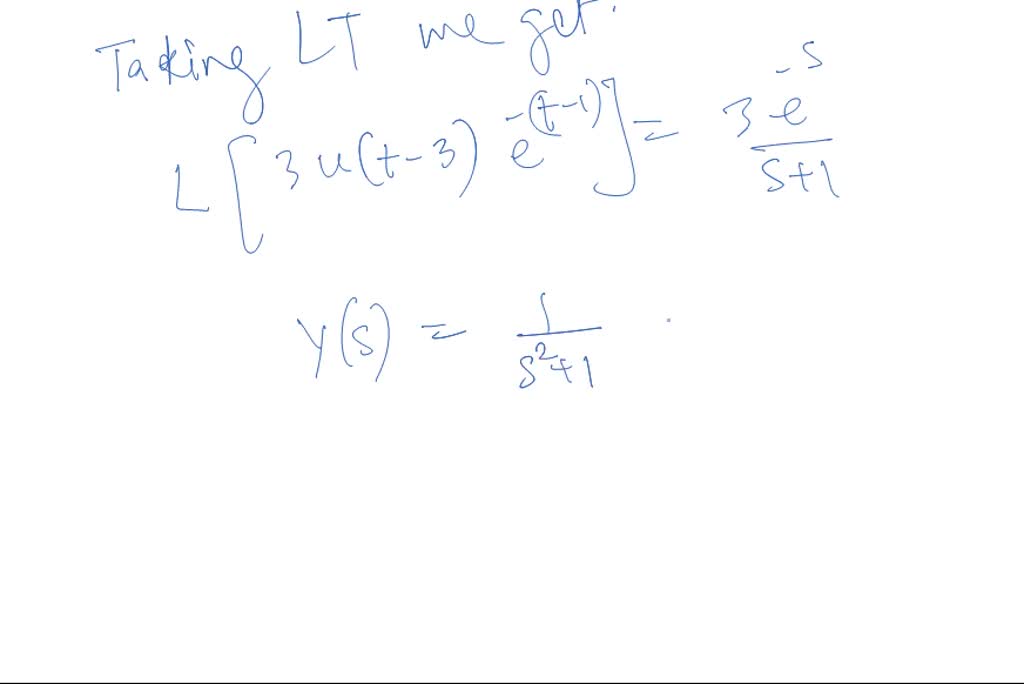 Taking LT we get.
L[3u(t-3) e^{-(t-1)}] = \frac{3e^{-s}}{s+1}
y(s) = \frac{1}{s^2+1}